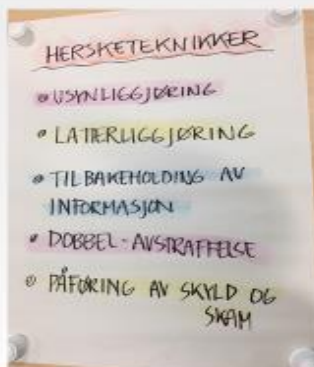 HERSKETEKNIKKER
• USYNLIGGJØRING
• LATTERLIGGJØRING
• TILBAKEHOLDING AV
INFORMASJON
• DOBBEL-AVSTRAFFELSE
• PÅFØRING AV SKYLD OG
SKAM